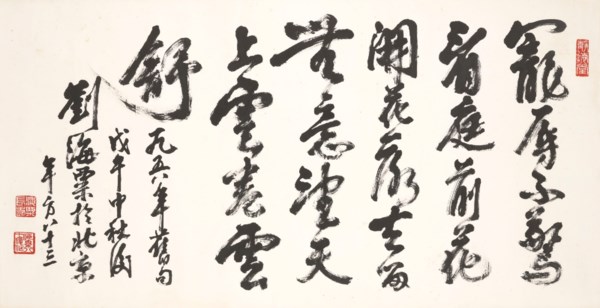 寵辱不驚
看庭前花
開花落去留
無意望天
上雲卷雲
舒
一九五八年舊句
戊午中秋後
劉海粟於北京
年方八十三